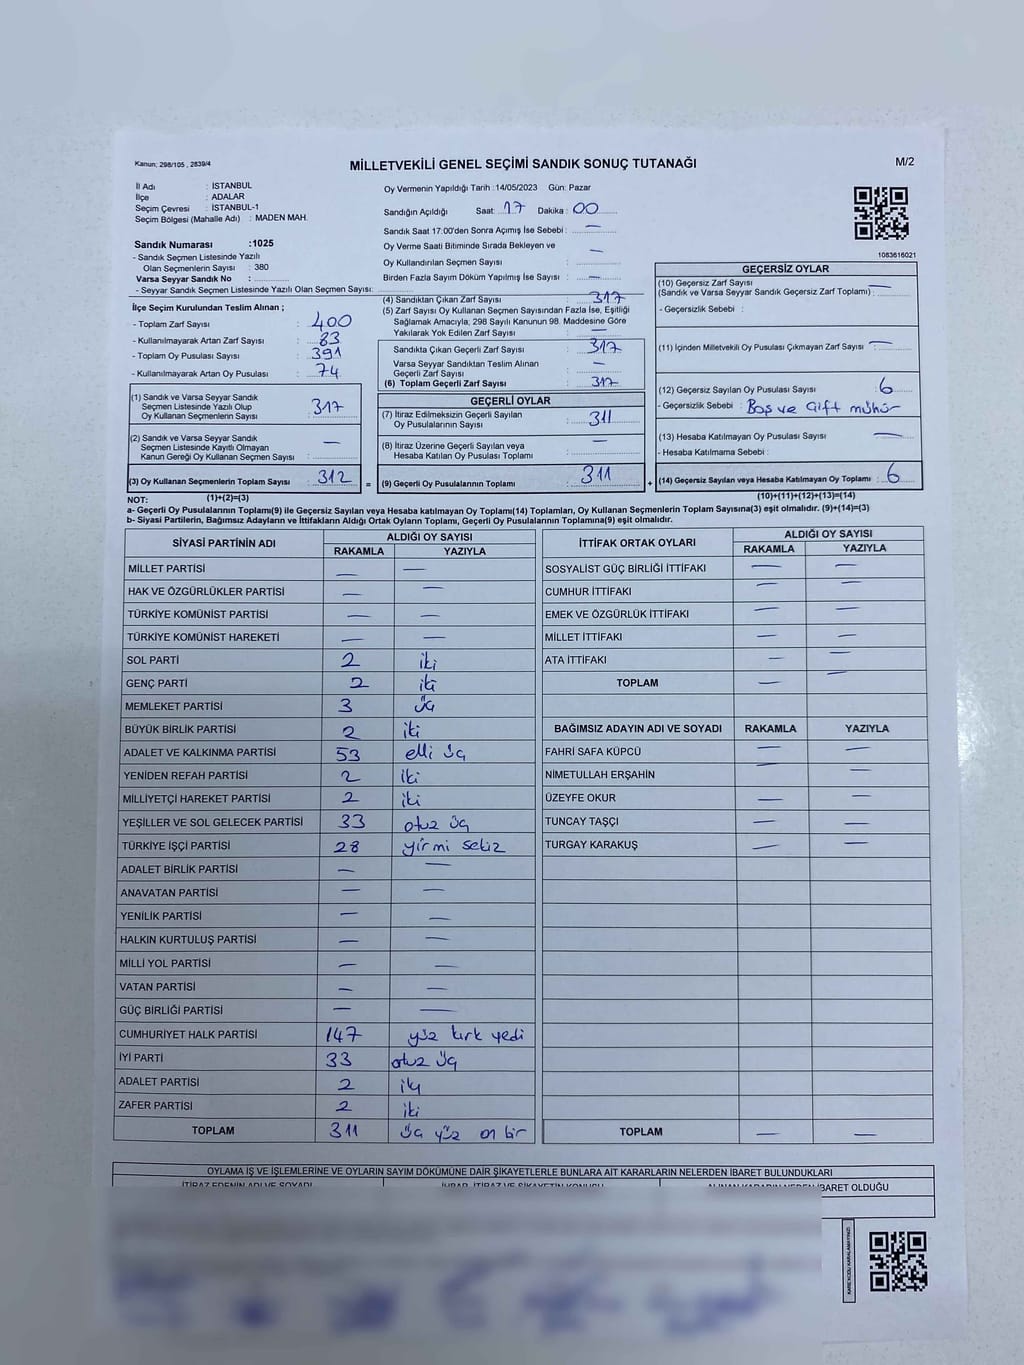 Kanun; 298/105 , 2839/4
MİLLETVEKİLİ GENEL SEÇİMİ SANDIK SONUÇ TUTANAĞI
M/2
İl Adı : İSTANBUL
İlçe : ADALAR
Seçim Çevresi : İSTANBUL-1
Seçim Bölgesi (Mahalle Adı) : MADEN MAH.
Sandık Numarası :1025
- Sandık Seçmen Listesinde Yazılı
Olan Seçmenlerin Sayısı : 380
Varsa Seyyar Sandık No :
- Seyyar Sandık Seçmen Listesinde Yazılı Olan Seçmen Sayısı:
Oy Vermenin Yapıldığı Tarih :14/05/2023 Gün: Pazar
Sandığın Açıldığı Saat: 17 Dakika : 00
Sandık Saat 17:00'den Sonra Açılmış İse Sebebi : —
Oy Verme Saati Bitiminde Sırada Bekleyen ve
Oy Kullandırılan Seçmen Sayısı : —
Birden Fazla Sayım Döküm Yapılmış İse Sayısı : —
1083616021
İlçe Seçim Kurulundan Teslim Alınan ;
- Toplam Zarf Sayısı : 400
- Kullanılmayarak Artan Zarf Sayısı : 83
- Toplam Oy Pusulası Sayısı : 391
- Kullanılmayarak Artan Oy Pusulası : 74
(1) Sandık ve Varsa Seyyar Sandık
Seçmen Listesinde Yazılı Olup
Oy Kullanan Seçmenlerin Sayısı : 317
(2) Sandık ve Varsa Seyyar Sandık
Seçmen Listesinde Kayıtlı Olmayan
Kanun Gereği Oy Kullanan Seçmen Sayısı : —
(3) Oy Kullanan Seçmenlerin Toplam Sayısı : 312
(4) Sandıktan Çıkan Zarf Sayısı : 317
(5) Zarf Sayısı Oy Kullanan Seçmen Sayısından Fazla İse, Eşitliği
Sağlamak Amacıyla; 298 Sayılı Kanunun 98. Maddesine Göre
Yakılarak Yok Edilen Zarf Sayısı : —
Sandıkta Çıkan Geçerli Zarf Sayısı : 317
Varsa Seyyar Sandıktan Teslim Alınan
Geçerli Zarf Sayısı : —
(6) Toplam Geçerli Zarf Sayısı : 317
GEÇERLİ OYLAR
(7) İtiraz Edilmeksizin Geçerli Sayılan
Oy Pusulalarının Sayısı : 311
(8) İtiraz Üzerine Geçerli Sayılan veya
Hesaba Katılan Oy Pusulası Toplamı : —
= (9) Geçerli Oy Pusulalarının Toplamı : 311
GEÇERSİZ OYLAR
(10) Geçersiz Zarf Sayısı
(Sandık ve Varsa Seyyar Sandık Geçersiz Zarf Toplamı) : —
- Geçersizlik Sebebi :
(11) İçinden Milletvekili Oy Pusulası Çıkmayan Zarf Sayısı : —
(12) Geçersiz Sayılan Oy Pusulası Sayısı : 6
- Geçersizlik Sebebi : Boş ve Çift mühür
(13) Hesaba Katılmayan Oy Pusulası Sayısı : —
- Hesaba Katılmama Sebebi :
+ (14) Geçersiz Sayılan veya Hesaba Katılmayan Oy Toplamı : 6
NOT: (1)+(2)=(3) (10)+(11)+(12)+(13)=(14)
a- Geçerli Oy Pusulalarının Toplamı(9) ile Geçersiz Sayılan veya Hesaba katılmayan Oy Toplamı(14) Toplamları, Oy Kullanan Seçmenlerin Toplam Sayısına(3) eşit olmalıdır. (9)+(14)=(3)
b- Siyasi Partilerin, Bağımsız Adayların ve İttifakların Aldığı Ortak Oyların Toplamı, Geçerli Oy Pusulalarının Toplamına(9) eşit olmalıdır.
SİYASİ PARTİNİN ADI ALDIĞI OY SAYISI
RAKAMLA YAZIYLA
MİLLET PARTİSİ — —
HAK VE ÖZGÜRLÜKLER PARTİSİ — —
TÜRKİYE KOMÜNİST PARTİSİ — —
TÜRKİYE KOMÜNİST HAREKETİ — —
SOL PARTİ 2 iki
GENÇ PARTİ 2 iki
MEMLEKET PARTİSİ 3 üç
BÜYÜK BİRLİK PARTİSİ 2 iki
ADALET VE KALKINMA PARTİSİ 53 elli üç
YENİDEN REFAH PARTİSİ 2 iki
MİLLİYETÇİ HAREKET PARTİSİ 2 iki
YEŞİLLER VE SOL GELECEK PARTİSİ 33 otuz üç
TÜRKİYE İŞÇİ PARTİSİ 28 yirmi sekiz
ADALET BİRLİK PARTİSİ — —
ANAVATAN PARTİSİ — —
YENİLİK PARTİSİ — —
HALKIN KURTULUŞ PARTİSİ — —
MİLLİ YOL PARTİSİ — —
VATAN PARTİSİ — —
GÜÇ BİRLİĞİ PARTİSİ — —
CUMHURİYET HALK PARTİSİ 147 yüz kırk yedi
İYİ PARTİ 33 otuz üç
ADALET PARTİSİ 2 iki
ZAFER PARTİSİ 2 iki
TOPLAM 311 üç yüz on bir
İTTİFAK ORTAK OYLARI ALDIĞI OY SAYISI
RAKAMLA YAZIYLA
SOSYALİST GÜÇ BİRLİĞİ İTTİFAKI — —
CUMHUR İTTİFAKI — —
EMEK VE ÖZGÜRLÜK İTTİFAKI — —
MİLLET İTTİFAKI — —
ATA İTTİFAKI — —
TOPLAM — —
BAĞIMSIZ ADAYIN ADI VE SOYADI RAKAMLA YAZIYLA
FAHRİ SAFA KÜPCÜ — —
NİMETULLAH ERŞAHİN — —
ÜZEYFE OKUR — —
TUNCAY TAŞÇI — —
TURGAY KARAKUŞ — —
TOPLAM — —
OYLAMA İŞ VE İŞLEMLERİNE VE OYLARIN SAYIM DÖKÜMÜNE DAİR ŞİKAYETLERLE BUNLARA AİT KARARLARIN NELERDEN İBARET BULUNDUKLARI
İTİRAZ EDENİN ADI VE SOYADI
İHBAR, İTİRAZ VE ŞİKAYETİN KONUSU
ALINAN KARARIN NEDEN İBARET OLDUĞU
KAREKODU KARALAMAYINIZ!